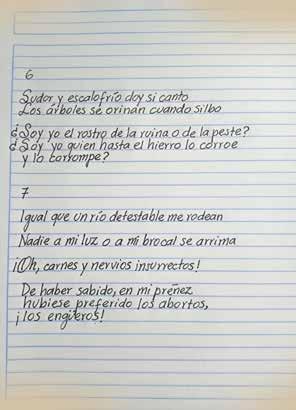 6
Sudor y escalofrío doy si canto
Los árboles se orinan cuando silbo
¿Soy yo el rostro de la ruina o de la peste?
¿Soy yo quien hasta el hierro lo corroe
y lo corrompe?
7
Igual que un río detestable me rodean
Nadie a mi luz o a mi brocal se arrima
¡Oh, carnes y nervios insurrectos!
De haber sabido, en mi preñez
hubiese preferido los abortos,
¡los engüeros!